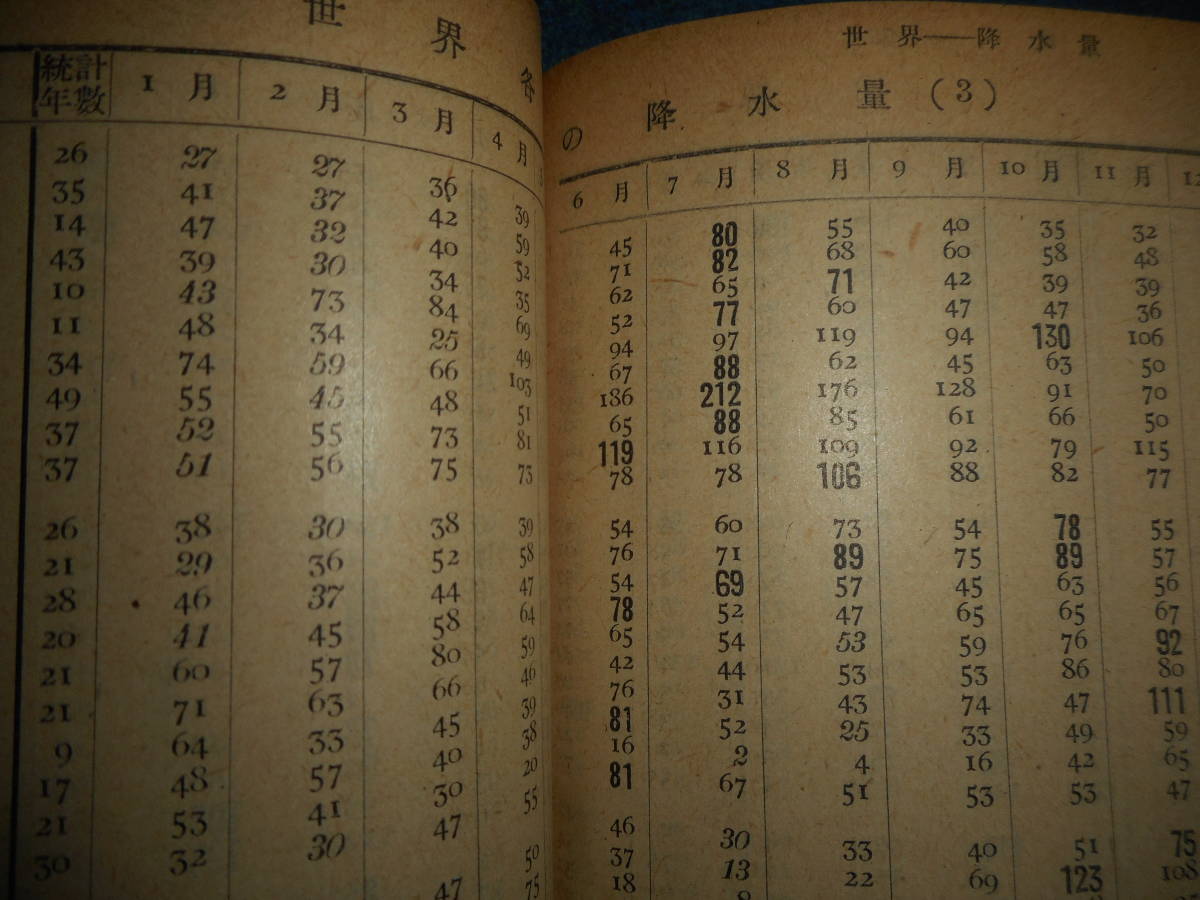 世界各
統計年數 1月 2月 3月 4月
26 27 27 36 39
35 41 37 42 59
14 47 32 40 52
43 39 30 34 35
10 43 73 84 69
11 48 34 25 49
34 74 59 66 103
49 55 45 48 51
37 52 55 73 81
37 51 56 75 75
26 38 30 38 39
21 29 36 52 58
28 46 37 44 47
20 41 45 58 64
21 60 57 80 59
21 71 63 66 46
9 64 33 45 39
17 48 57 40 38
21 53 41 30 20
30 32 30 47 55
50
47 75
世界—降水量
の降水量(3)
6月 7月 8月 9月 10月 11月 12
45 80 55 40 35 32
71 82 68 60 58 48
62 65 71 42 39 39
52 77 60 47 47 36
94 97 119 94 130 106
67 88 62 45 63 50
186 212 176 128 91 70
65 88 85 61 66 50
119 116 109 92 79 115
78 78 106 88 82 77
54 60 73 54 78 55
76 71 89 75 89 57
54 69 57 45 63 56
78 52 47 65 65 67
65 54 53 59 76 92
42 44 53 53 86 80
76 31 43 74 47 111
81 52 25 33 49 59
16 2 4 16 42 65
81 67 51 53 53 47
46 30 33 40 51 75
37 13 22 69 123 108
18